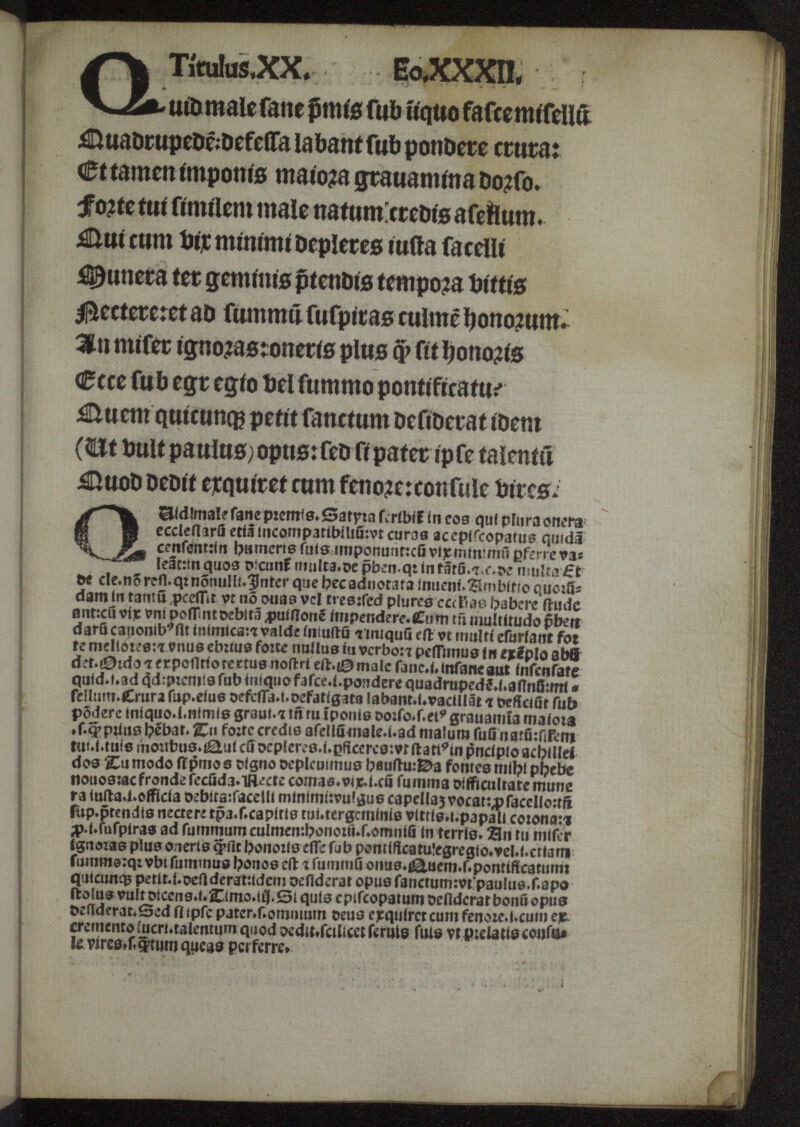 Titulus.XX. Fo.XXXII.
Quid male sane p̄mis sub iiquo fasce misellū
Quadrupedē: defessa labant sub pondere crura:
Et tamen imponis maiora grauamina dorso.
Forte tui similem male natum credis asellum.
Qui cum vix minimi depleres iusta sacelli
Munera ter geminis p̄tendis tempora vittis
Nectere: et ad summū suspiras culmē honorum.
An miser ignoras: oneris plus q̄ sit honoris
Ecce sub egregio vel summo pontificatu?
Quem quicunq; petit sanctum desiderat idem
(Ut vult paulus) opus: sed si pater ipse talentū
Quod dedit exquiret cum fenore: consule vires.
QUid male sane premis. Satyra scribit̄ in eos qui plura onera
ecclesiarū etiā incompatibiliū: vt curas ac episcopatus quidā
censent: in humeris suis imponunt: cū vix minimū p̱ferre va=
leāt: in quos dicunt̄ multa. de p̄ben. qꝛ in tātū. ⁊.c. de multa Et
de cle. nō resi. qꝛ nōnulli. Inter que hec adnotata inueni. Ambitio quorū=
dam in tantū ꝓcessit vt nō duas vel tres: sed plures eccl̄ias habere stude
ant: cū vix vni possint debitā ꝓuisionē impendere. Cum tn̄ multitudo p̄ben
darū canonibꝰ sit inimica: ⁊ valde iniustū ⁊ iniquū est vt multi esuriant for
te meliores: ⁊ vnus ebrius forte nullius in verbo: ⁊ pessimus in exēplo abū
det. Ordo ⁊ expositio textus nostri est. O male sane. i. insane aut insensate
quid. i. ad qd: premis sub iniquo fasce. i. pondere quadrupedē. i. asinū: mi=
sellum. Crura sup. eius defessa. i. defatigata labant. i. vacillāt ⁊ deficiūt sub
pōdere iniquo. i. nimis graui. ⁊ tn̄ tu īponis dorso. s. eiꝰ grauamīa maiora
.s. q̄ prius hēbat. Tu forte credis asellū male. i. ad malum suū natū: sil̄em
tui. i. tuis moribus. Qui cū depleres. i. p̱ficeres: vt statiꝰ in p̄ncipio achillei
dos Tu modo si p̄mos digno depleuimus haustu: Da fontes mihi phebe
nouos: ac fronde secūda. Necte comas. vix. i. cū summa difficultate mune
ra iusta. i. officia debita: sacelli minimi: vulgus capellaȝ vocat: ꝓ sacello: tn̄
sup. p̄tendis nectere tp̄a. s. capitis tui. tergeminis vittis. i. papali corona: ⁊
ꝓ. i. suspiras ad summum culmen: honorū. s. omniū in terris. An tu miser
ignoras plus oneris q̄ sit honoris esse sub pontificatu: egregio. vel. i. etiam
summo: qꝛ vbi summus honos est ⁊ summū onus. Quem. s. pontificatum
quicunq; petit. i. desiderat: idem desiderat opus sanctum: vt paulus. s. apo
stolus vult dicens. i. Timo. iij. Si quis episcopatum desiderat bonū opus
desiderat. Sed si ipse pater. s. omnium deus exquiret cum fenore. i. cum ex
cremento lucri. talentum quod dedit. scilicet seruis suis vt prelatis consu=
le vires. s. q̄tum queas perferre.